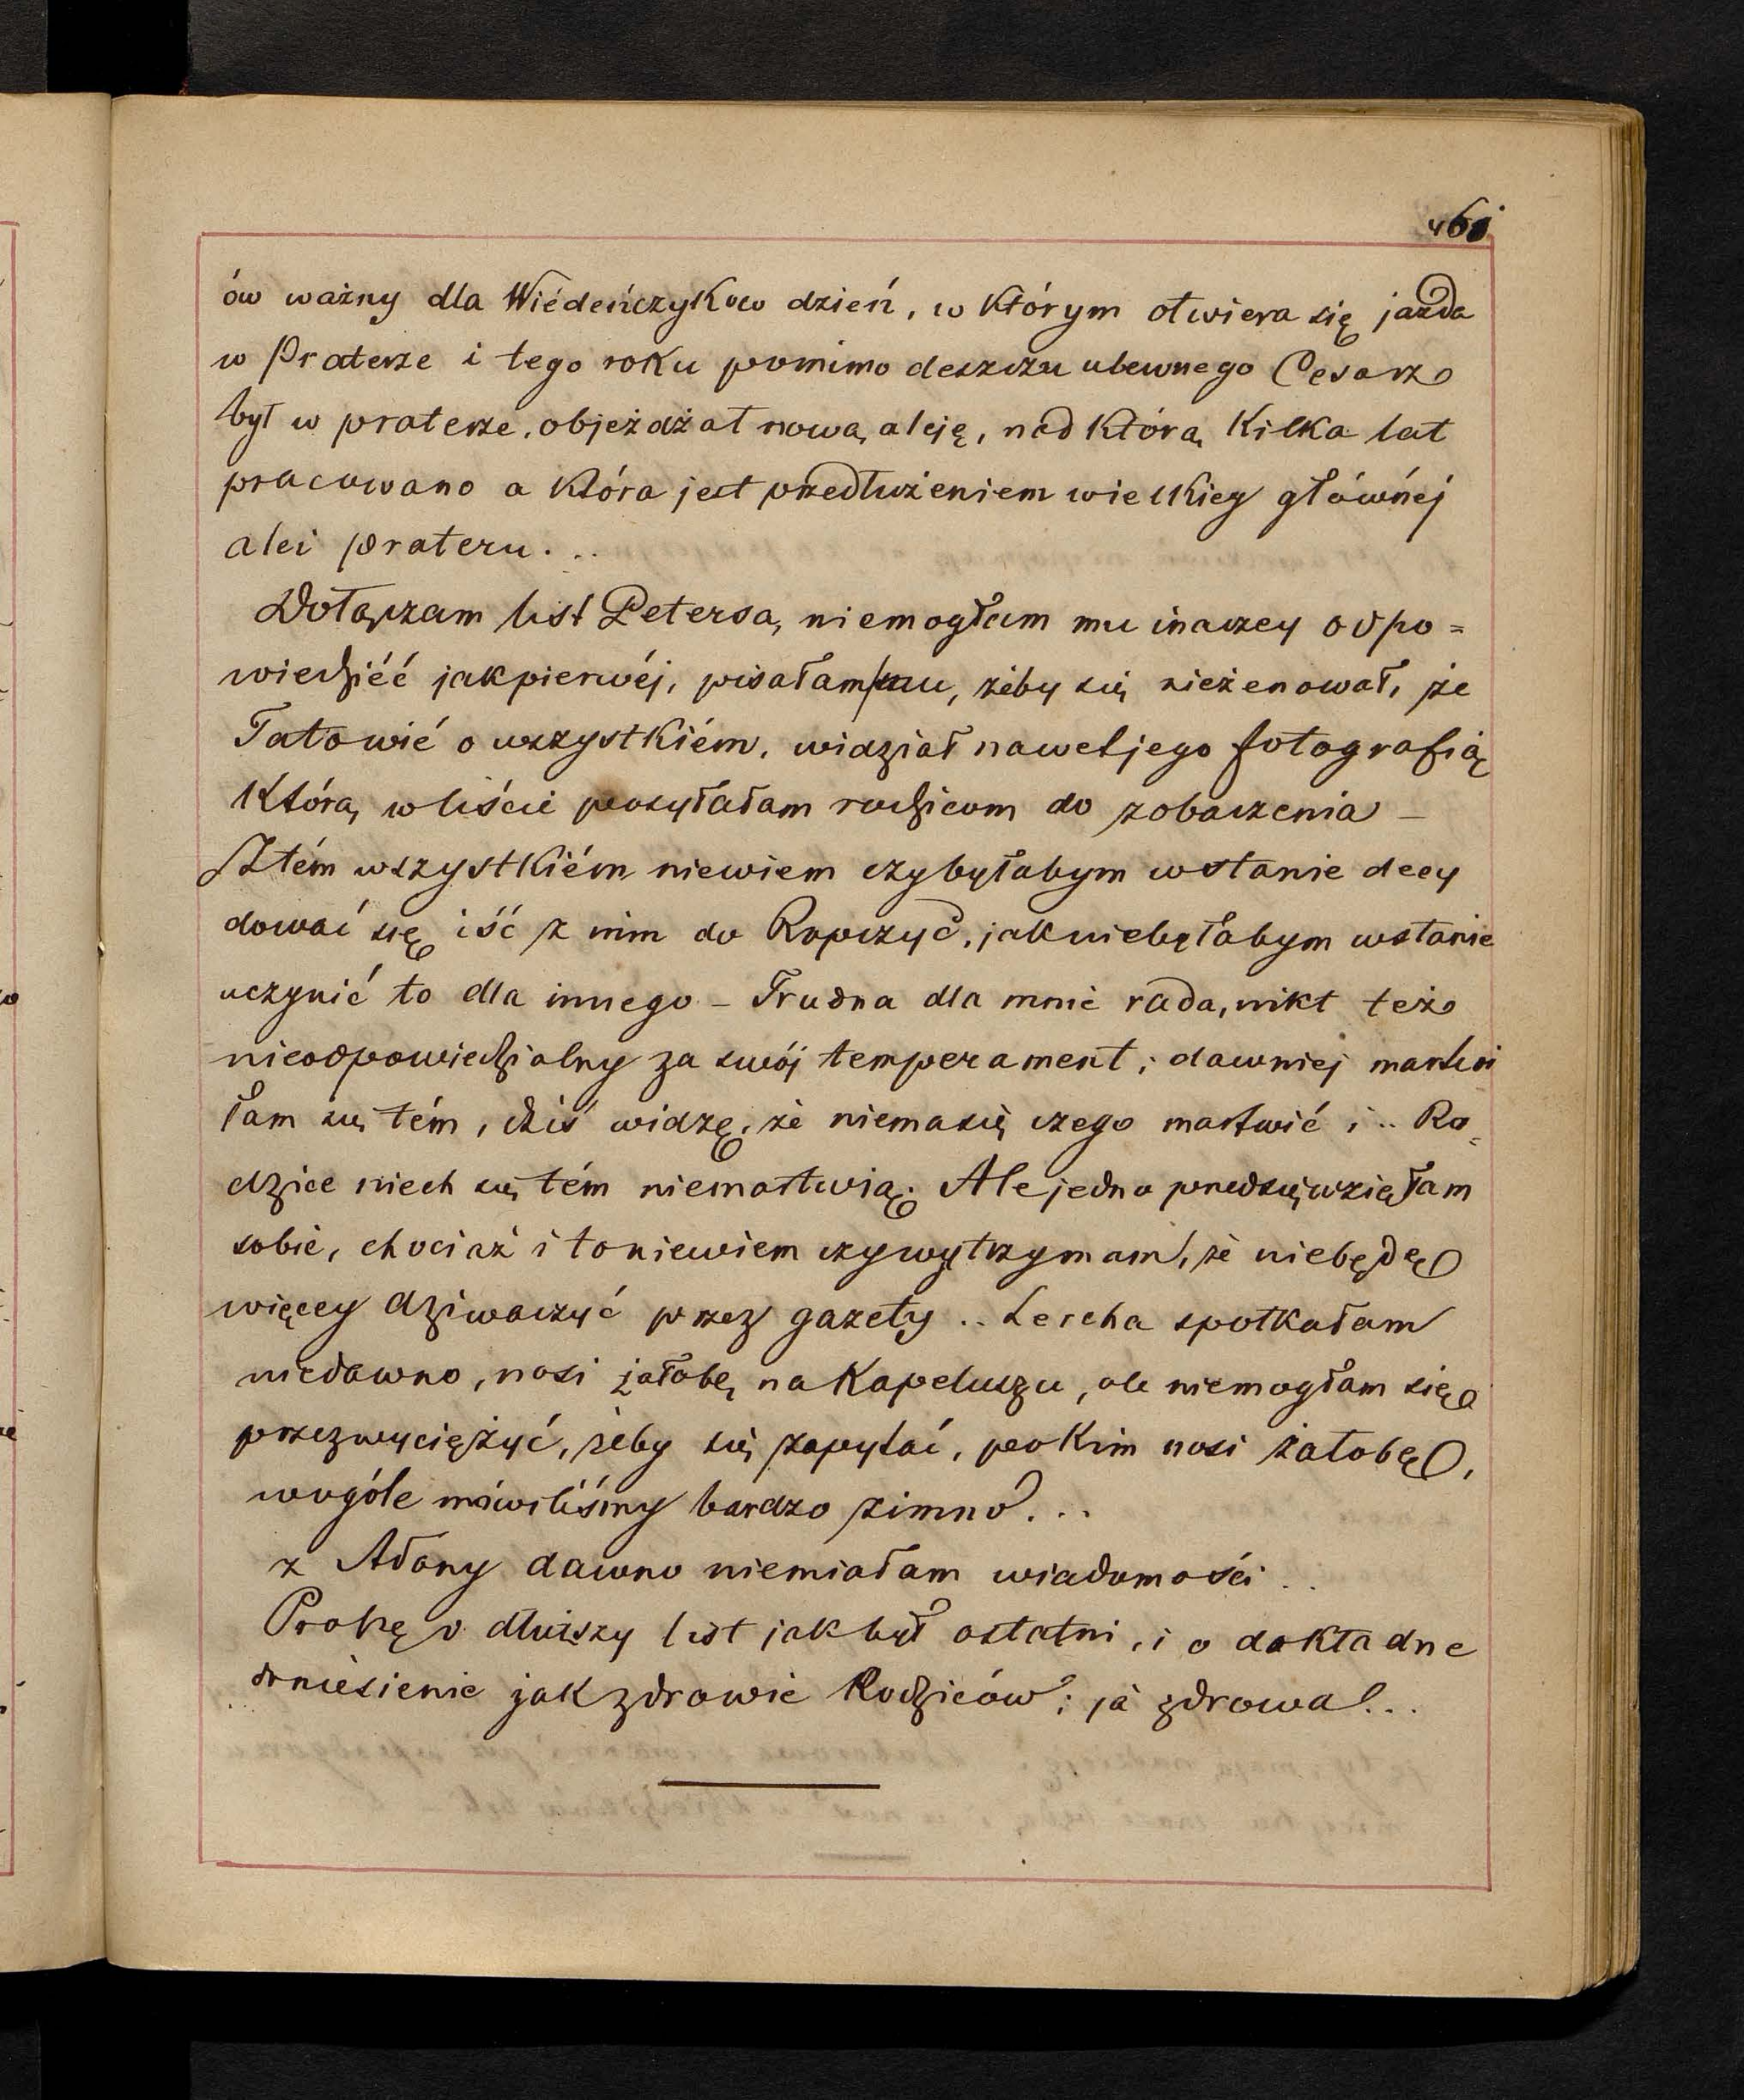 461
ów ważny dla Wiedeńczyków dzień, w którym otwiera się jazda
w Praterze i tego roku pomimo deszczu ulewnego Cesarz
był w praterze, objeżdżał nową aleję, nad którą kilka lat
pracowano a która jest przedłużeniem wielkiey głównéj
alei prateru...
Dołączam list Petersa, niemogłam mu inaczey odpo=
wiedzićć jak pierwéj, pisałam mu, żeby się nieżenował, że
Tato wié o wszystkiém, widział nawet jego fotografią
którą w liście posyłałam rodzicom do zobaczenia –
Z tém wszystkiém niewiem czybyłabym wstanie decy
dować się iść z nim do Ropczyc, jak niebyłabym wstanie
uczynić to dla innego – Trudna dla mnie rada, nikt też
nieodpowiedzialny za swój temperament; dawniej martwi
łam się tém, dziś widzę, że niema się czego martwić i.. Ro=
dzice niech się tém niemartwią. Ale jedno przedsięwzięłam
sobie, chociaż i to niewiem czy wytrzymam, że niebędę
więcey dziwaczyć przez gazety.. Lercha spotkałam
niedawno, nosi żałobę na kapeluszu, ale niemogłam się
przezwyciężyć, żeby się zapytać, po kim nosi żałobę,
wogóle mówiliśmy bardzo zimno...
z Adony dawno niemiałam wiadomości..
Proszę o dłuższy list jak był ostatni, i o dokładne
doniesienie jak zdrowie Rodziców; ja zdrowa!..